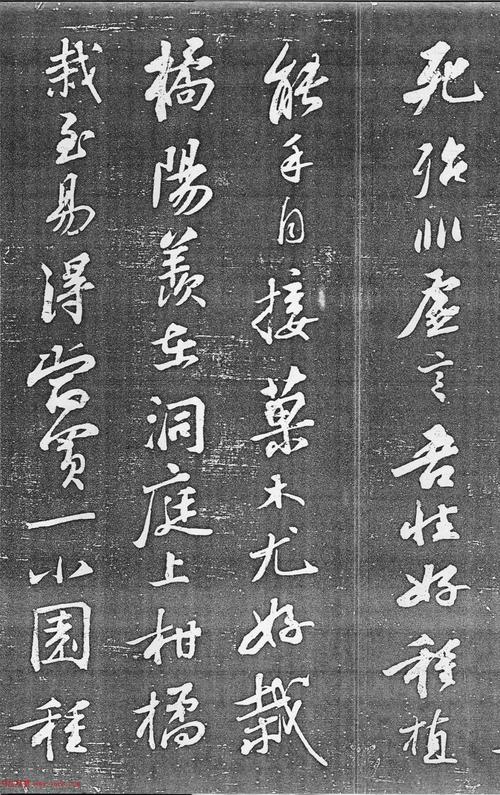 死殆非虚言吾性好种植
能手自接菓木尤好栽
橘陽羨在洞庭上柑橘
栽至易得當買一小園種